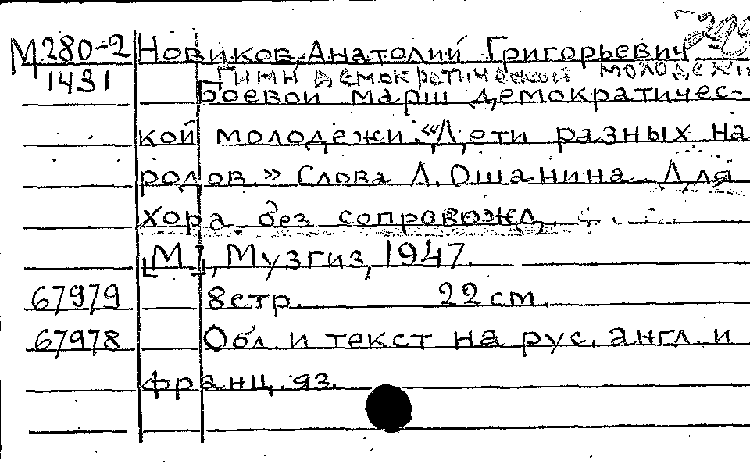 М280-2 Новиков, Анатолий Григорьевич
1431 Гимн демократической молодежи
Боевой марш демократичес-
кой молодежи. "Дети разных на
родов." Слова Л. Ошанина. Для
хора без сопровожд.
[М.], Музгиз, 1947.
67979 8 стр. 22 см.
67978 Обл. и текст на рус., англ. и
франц. яз.